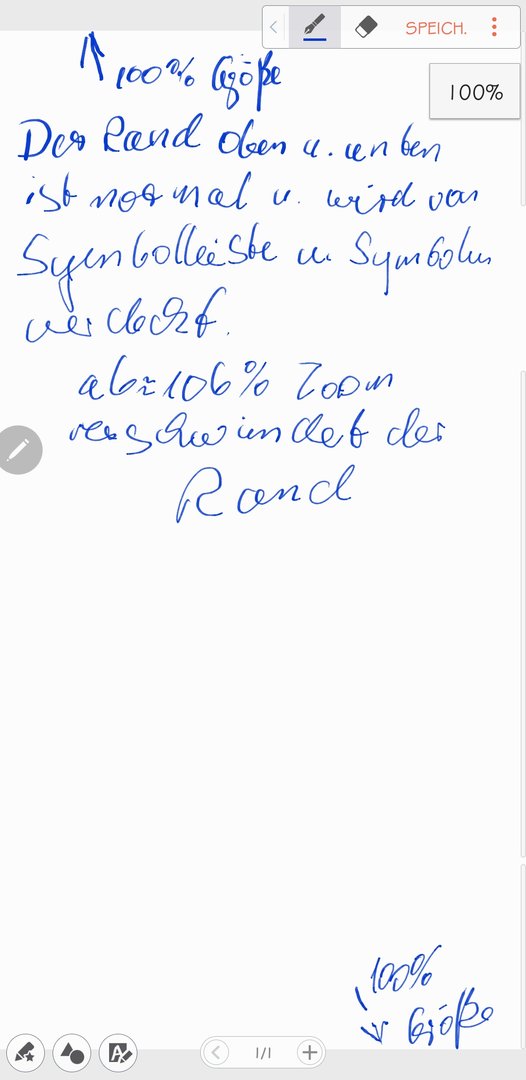 SPEICH.
100% Größe
100%
Der Rand oben u. unten
ist normal u. wird von
Symbolleiste u. Symbolen
verdeckt.
ab ≈ 106% Zoom
verschwindet der
Rand
100%
Größe
1/1